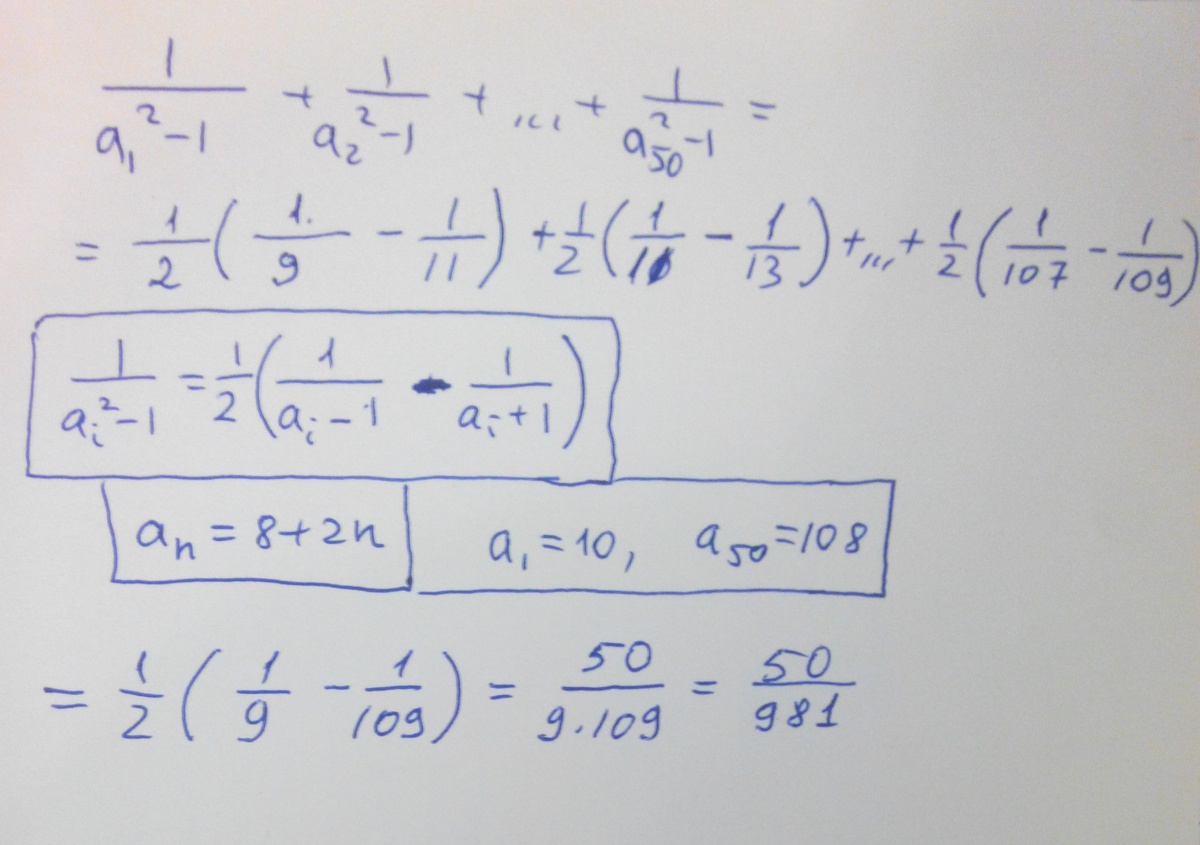 1/(a₁² − 1) + 1/(a₂² − 1) + ... + 1/(a₅₀² − 1) =
= 1/2 (1/9 − 1/11) + 1/2 (1/11 − 1/13) + ... + 1/2 (1/107 − 1/109)
1/(aᵢ² − 1) = 1/2 (1/(aᵢ − 1) − 1/(aᵢ + 1))
aₙ = 8 + 2n   a₁ = 10, a₅₀ = 108
= 1/2 (1/9 − 1/109) = 50/(9·109) = 50/981